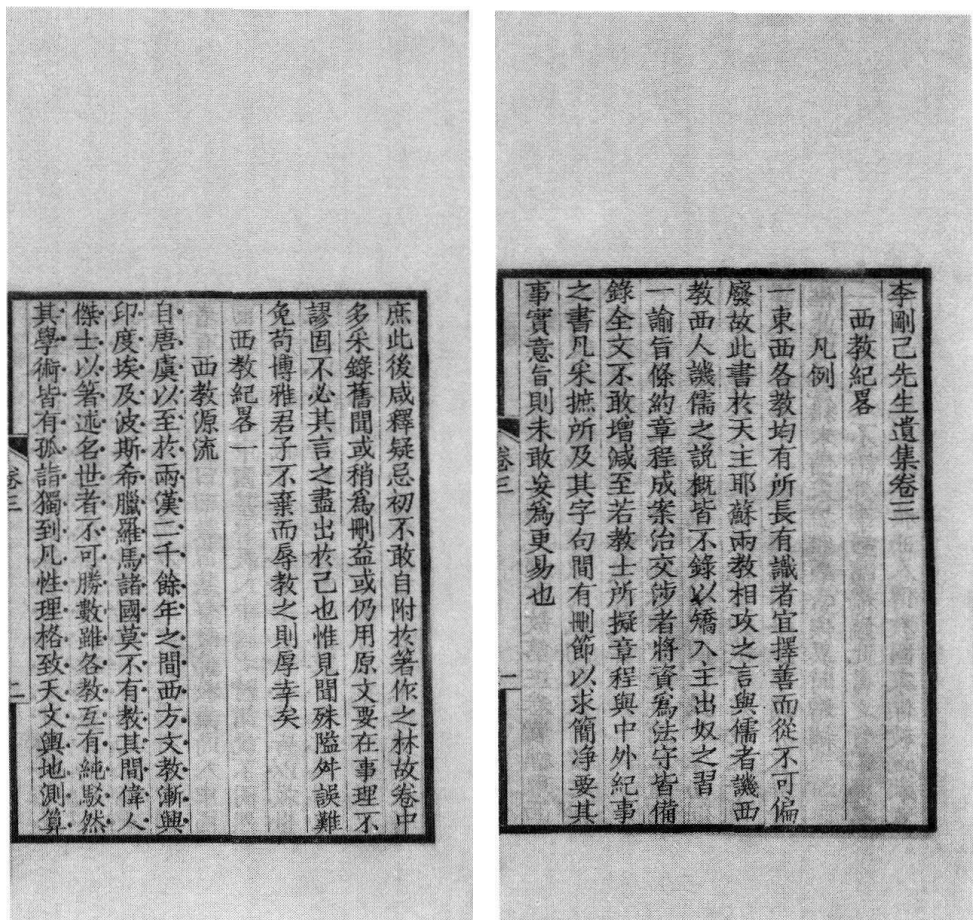 李剛己先生遺集卷三
西教紀畧
凡例
一東西各教均有所長有識者宜擇善而從不可偏
廢故此書於天主耶蘇兩教相攻之言與儒者譏西
教西人譏儒之説概皆不錄以矯入主出奴之習
一諭旨條約章程成案治交涉者將資為法守皆備
錄全文不敢增減至若教士所擬章程與中外紀事
之書凡采摭所及其字句間有刪節以求簡净要其
事實意旨則未敢妄為更易也
卷三
一
庶此後咸釋疑忌初不敢自附於箸作之林故卷中
多采錄舊聞或稍為刪益或仍用原文要在事理不
謬固不必其言之盡出於己也惟見聞殊隘舛誤難
免苟博雅君子不棄而辱教之則厚幸矣
西教紀畧一
西教源流
自唐虞以至於兩漢二千餘年之間西方文教漸興
印度埃及波斯希臘羅馬諸國莫不有教其間偉人
傑士以箸述名世者不可勝數雖各教互有純駁然
其學術皆有孤詣獨到凡性理格致天文輿地測算
卷三
二